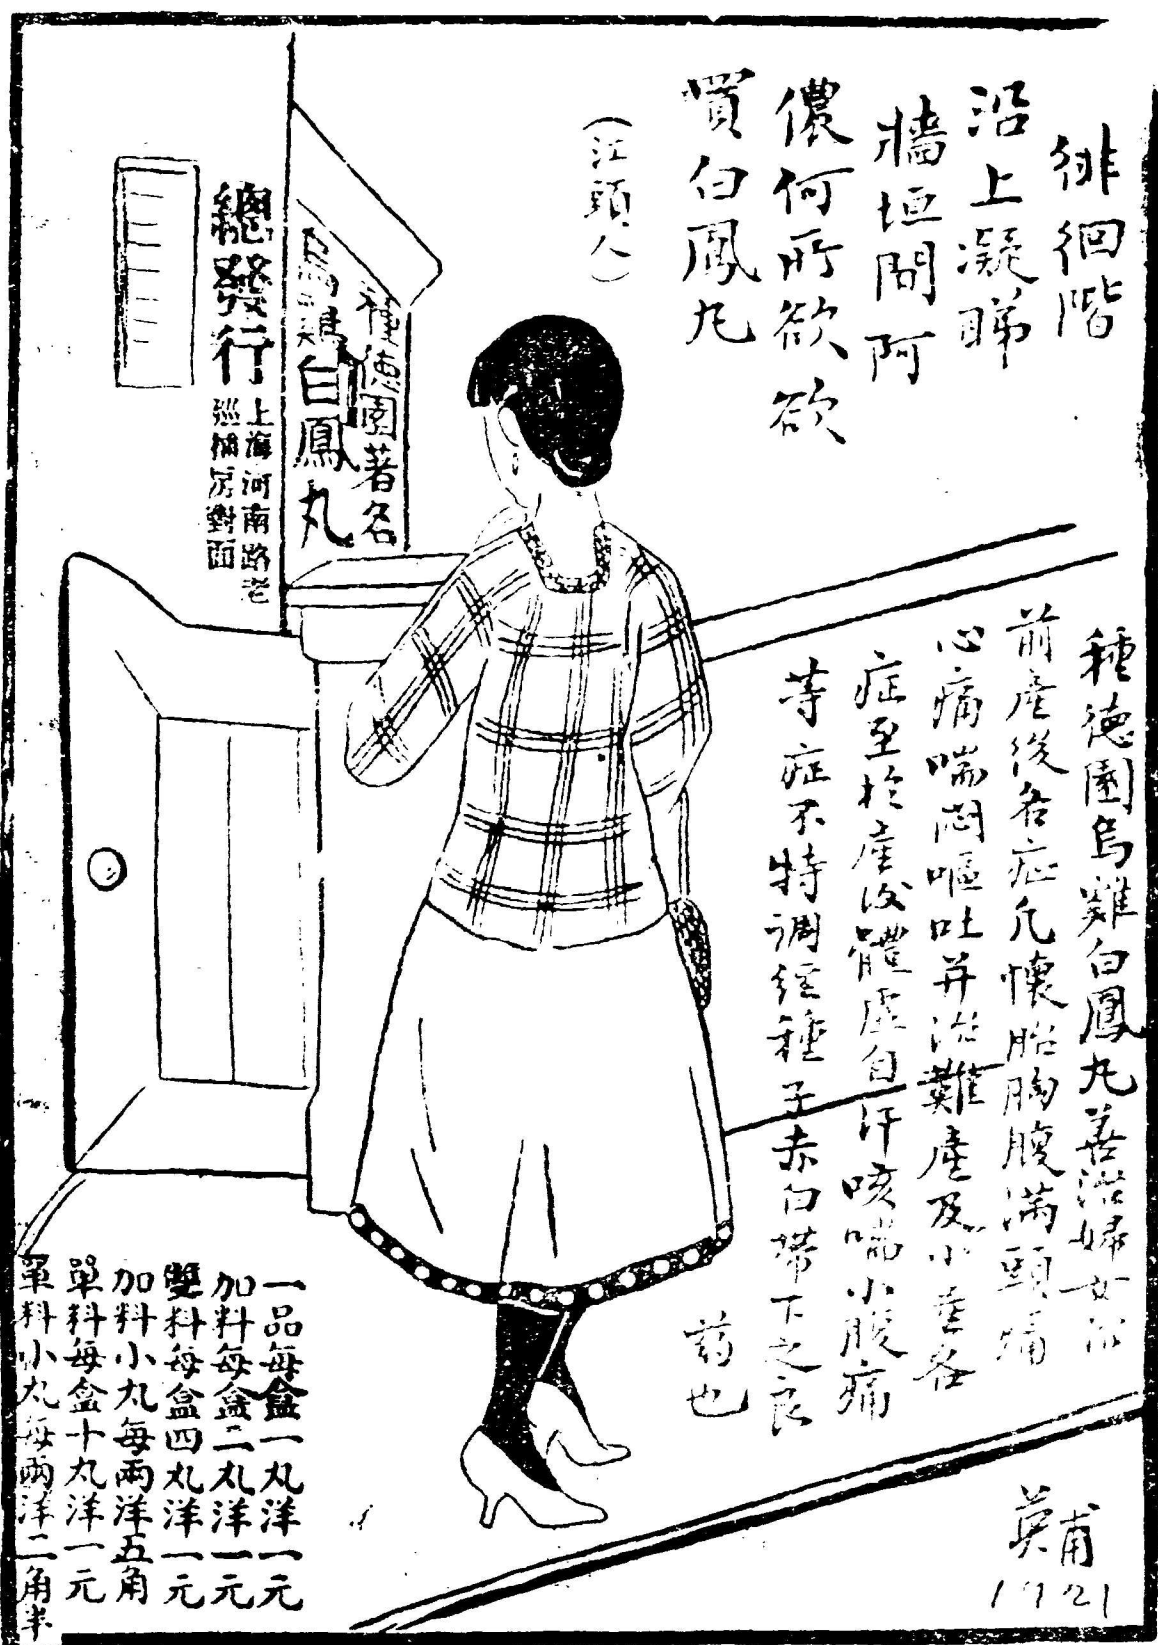 徘徊階
沿上凝睇
牆垣間阿
儂何所欲欲
買白鳳丸
(江頭人)
種德園著名
烏鷄白鳳丸
總發行
上海河南路老
巡捕房對面
種德園烏雞白鳳丸善治婦女
前產後各症凡懷胎胸腹滿頭痛
心痛喘悶嘔吐并治難產及小產各
症至於產後體虛自汗咳喘小腹痛
等症不特調經種子赤白帶下之良
药也
一品每盒一丸洋一元
加料每盒二丸洋一元
雙料每盒四丸洋一元
加料小丸每兩洋五角
單料每盒十丸洋一元
單料小丸每兩洋二角半
英甫
1921